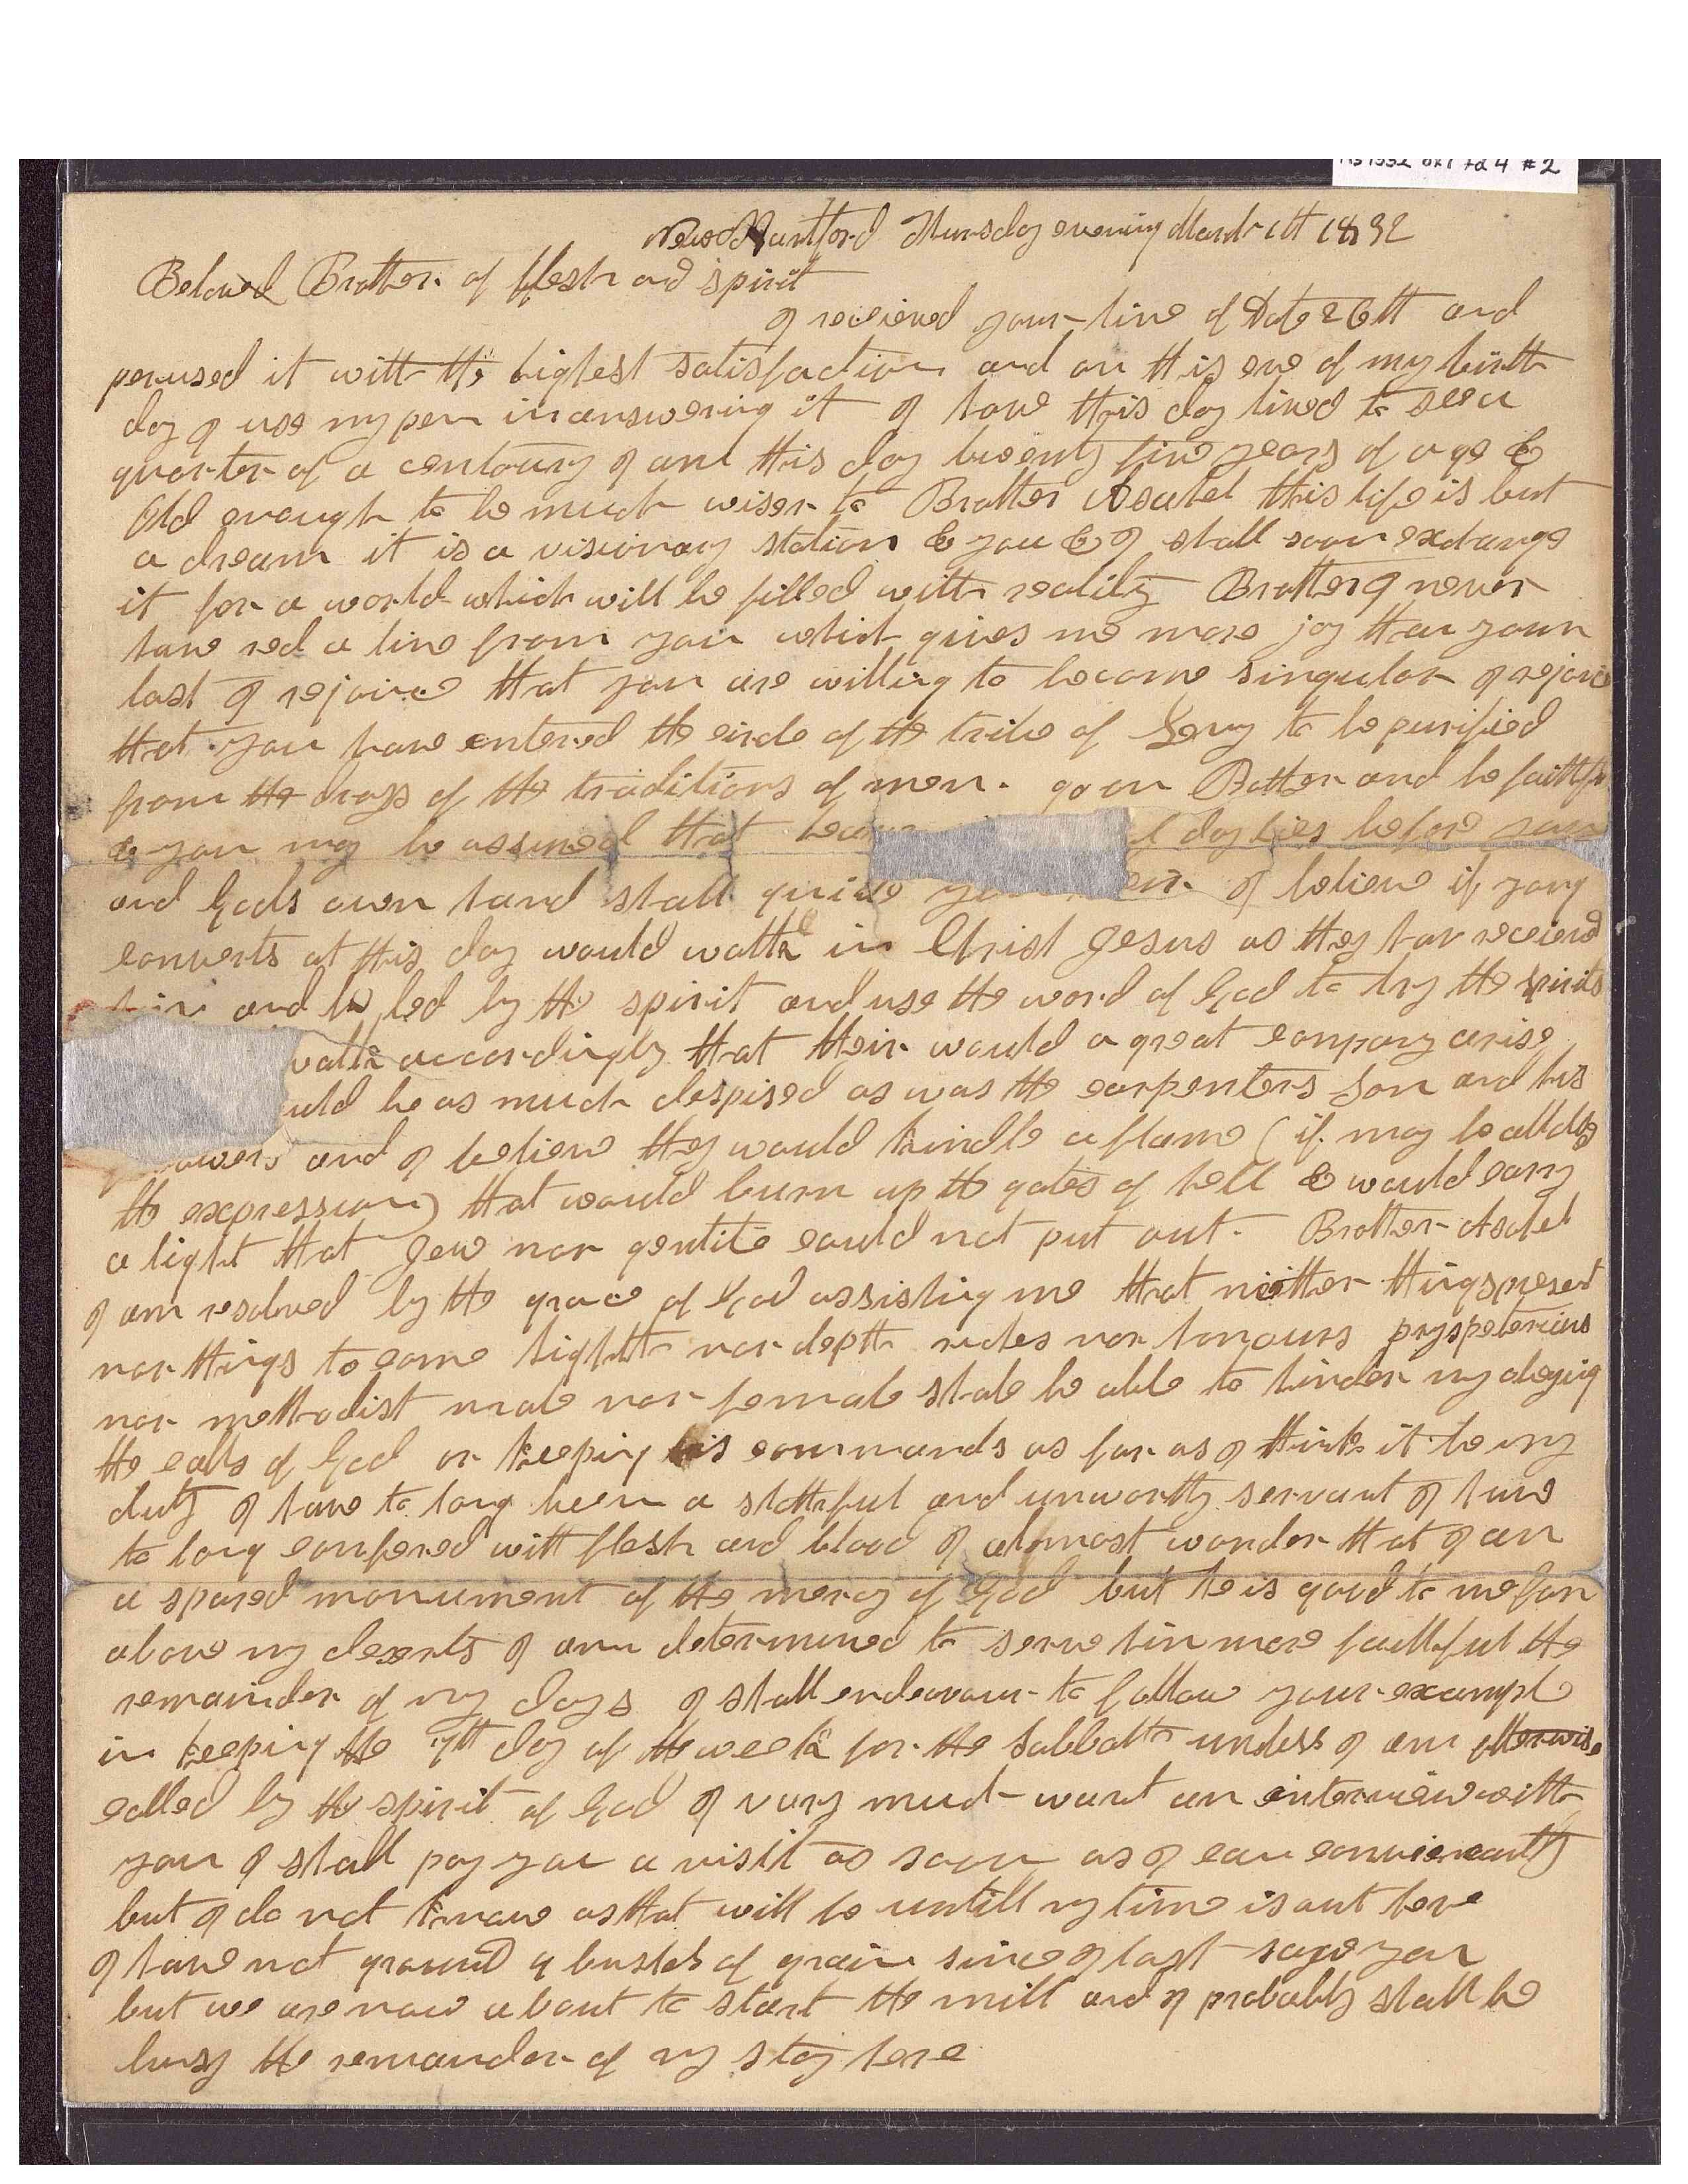 MS 1352 bx 1 fd 4 #2
New Hartford Thursday evening March 1st 1832
Beloved Brother of flesh and spirit
I received your line of Date 26th and
perused it with the highest satisfaction and on this eve of my birth
day I use my pen in answering it I have this day lived to see a
quarter of a centoury I am this day twenty five years of age &
Old enough to be much wiser to Brother Asahel this life is but
a dream it is a visionary station & you & I shall soon exchange
it for a world which will be filled with reality Brother I never
have red a line from you which gives me more joy than your
last I rejoice that you are willing to become singular I rejoice
that you have entered the circle of the tribe of Levy to be purified
from the dross of the traditions of men. go on Brother and be faithful
& you may be assured that day lies before you
and Gods own hand shall guide I believe if yong
converts at this day would walk in Christ Jesus as they hav received
him and be led by the spirit and use the word of God to try the spirits
walk accordingly that their would a great company arise
uld be as much despised as was the carpenters son and his
owers and I believe they would kindle a flame (if may be allowd
the expression) that would burn up the gates of hell & would carry
a light that Jew nor gentile could not put out. Brother Asahel
I am resolved by the grace of God assisting me that neither things present
nor things to come highth nor depth riches nor honours pryspeterians
nor methodist male nor female shale be able to hinder my obeying
the calls of God or keeping his commands as far as I think it be my
duty I have to long been a slothful and unworthy servant I have
to long confered with flesh and blood I allmost wonder that I am
a spared monument of the mercy of God but he is good to me far
above my deserts I am determined to serve him more faithful the
remainder of my days I shall endeavour to follow your exampl
in keeping the 7th day of the week for the Sabbath undess I am otherwise
called by the spirit of God I vary much want an interview with
you I shall pay you a visit as soon as I can
but I do not know as that will be untill my time is out here
I have not ground 4 bushels of grain since I last saye you
but we are now about to start the mill and I probably shall be
busy the remander of my stay here